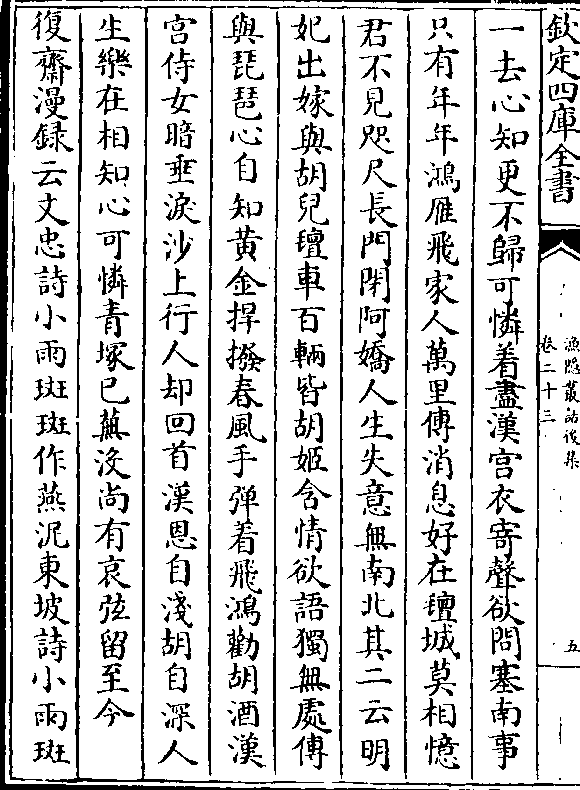 欽定四庫全書
漁隱叢話後集
卷二十三
五
一去心知更不歸可憐着盡漢宫衣寄聲欲問塞南事
只有年年鴻雁飛家人萬里傳消息好在氊城莫相憶
君不見咫尺長門閉阿嬌人生失意無南北其二云明
妃出嫁與胡兒氊車百輛皆胡姬含情欲語獨無處傳
與琵琶心自知黄金捍撥春風手弹着飛鴻勸胡酒漢
宫侍女暗垂淚沙上行人却回首漢恩自淺胡自深人
生樂在相知心可憐青塚已蕪没尚有哀弦留至今
復齋漫録云文忠詩小雨斑斑作燕泥東坡詩小雨斑